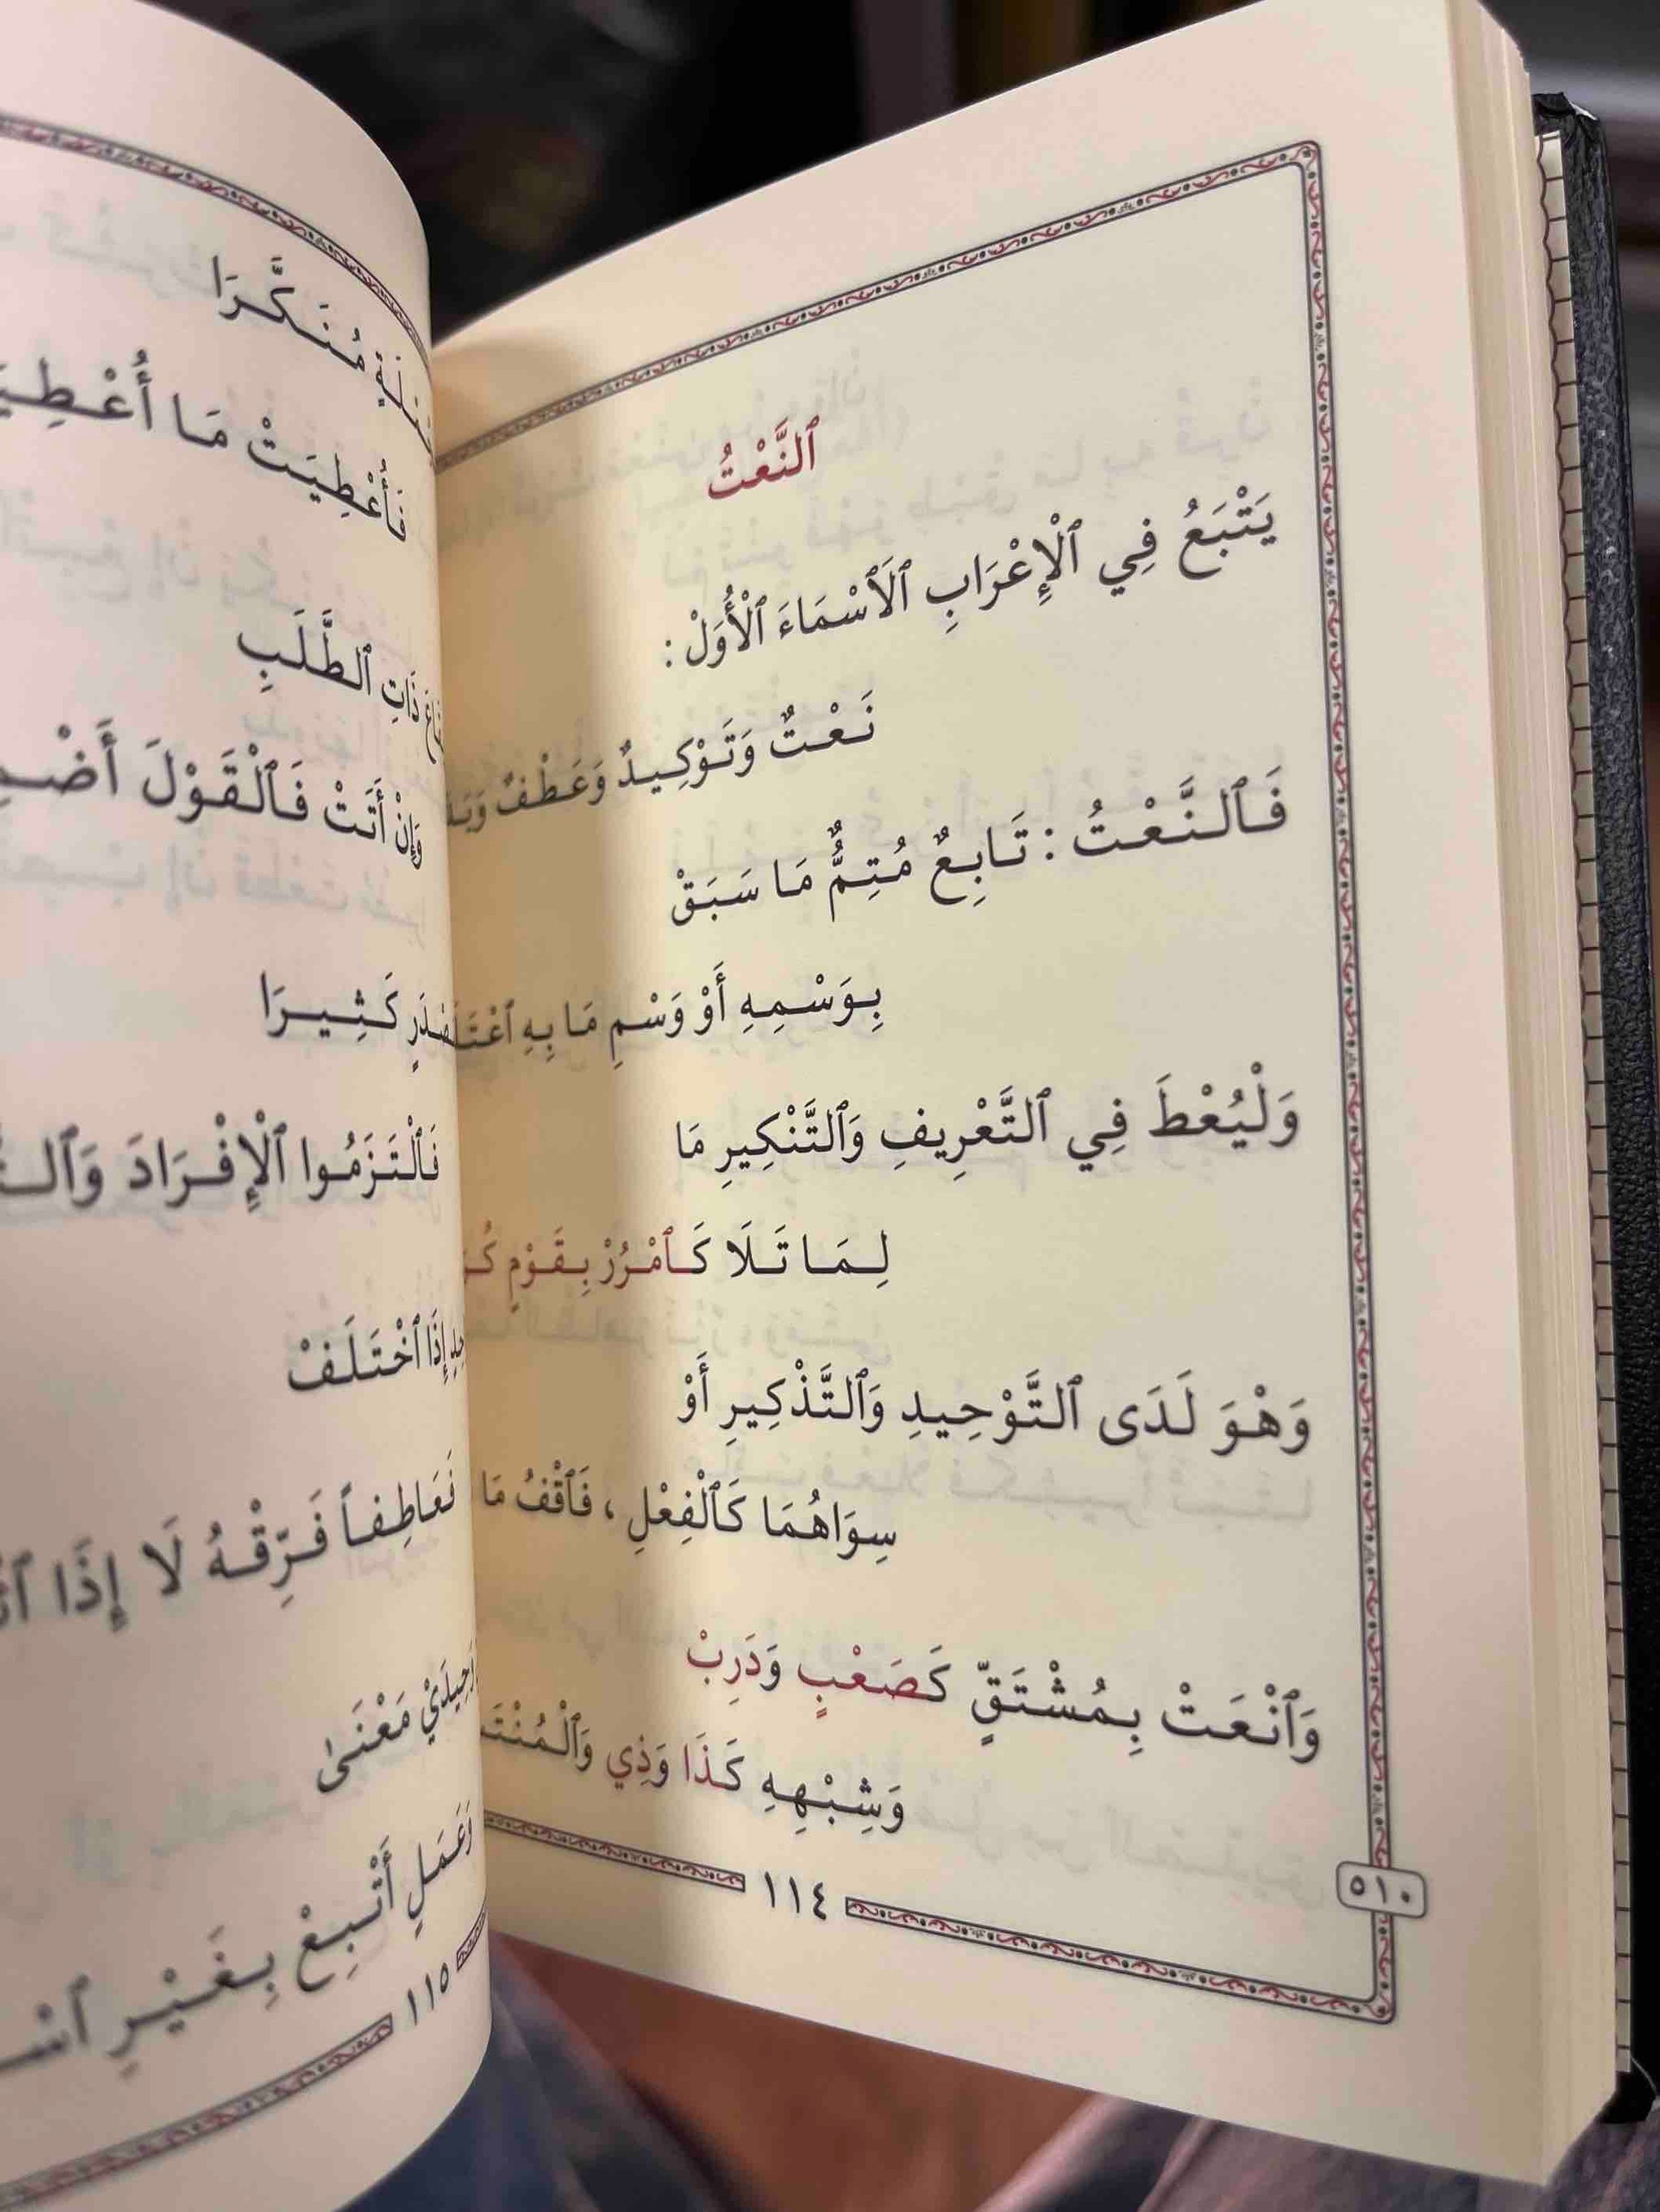 ٱلنَّعْتُ
يَتْبَعُ فِي ٱلْإِعْرَابِ ٱلَٱسْمَاءَ ٱلْأُوَلْ :
نَعْتٌ وَتَوْكِيدٌ وَعَطْفٌ
فَٱلنَّعْتُ : تَابِعٌ مُتِمٌّ مَا سَبَقْ
بِوَسْمِهِ أَوْ وَسْمِ مَا بِهِ
وَلْيُعْطَ فِي ٱلتَّعْرِيفِ وَٱلتَّنْكِيرِ مَا
لِمَا تَلَا كَٱمْرُرْ بِقَوْمٍ
وَهْوَ لَدَى ٱلتَّوْحِيدِ وَٱلتَّذْكِيرِ أَوْ
سِوَاهُمَا كَٱلْفِعْلِ ، فَٱقْفُ مَا
وَٱنْعَتْ بِمُشْتَقٍّ كَصَعْبٍ وَدَرِبْ
وَشِبْهِهِ كَذَا وَذِي
٥١٠
١١٤
مُنَكَّرَا
فَأُعْطِيَتْ مَا
ذَاتِ ٱلطَّلَبِ
وَإِنْ أَتَتْ فَٱلْقَوْلَ
كَثِيرَا
فَٱلْتَزَمُوا ٱلْإِفْرَادَ
إِذَا ٱخْتَلَفْ
فَعَاطِفاً فَرِّقْهُ لَا إِذَا
مَعْنَىٰ
وَعَمَلٍ أَتْبِعْ بِغَيْرِ
١١٥